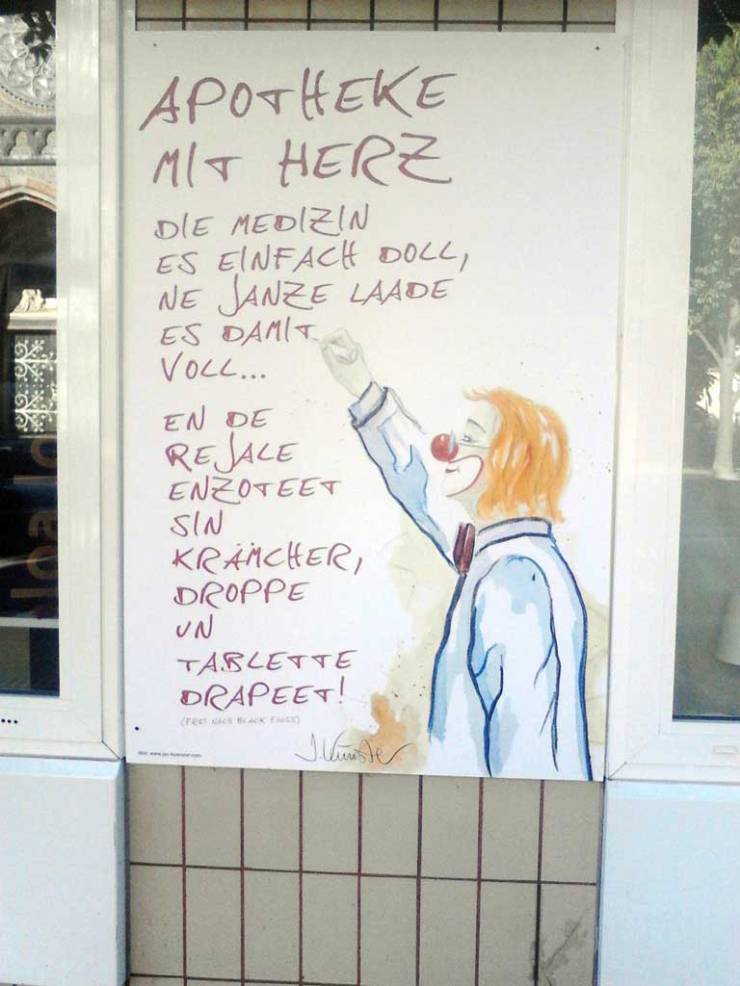 APOTHEKE
MIT HERZ
DIE MEDIZIN
ES EINFACH DOLL,
NE JANZE LAADE
ES DAMIT
VOLL...
EN DE
REJALE
ENZOTEET
SIN
KRÄMCHER,
DROPPE
UN
TABLETTE
DRAPEET!
(FREI NACH BLACK FÖÖSS)
J. Künster